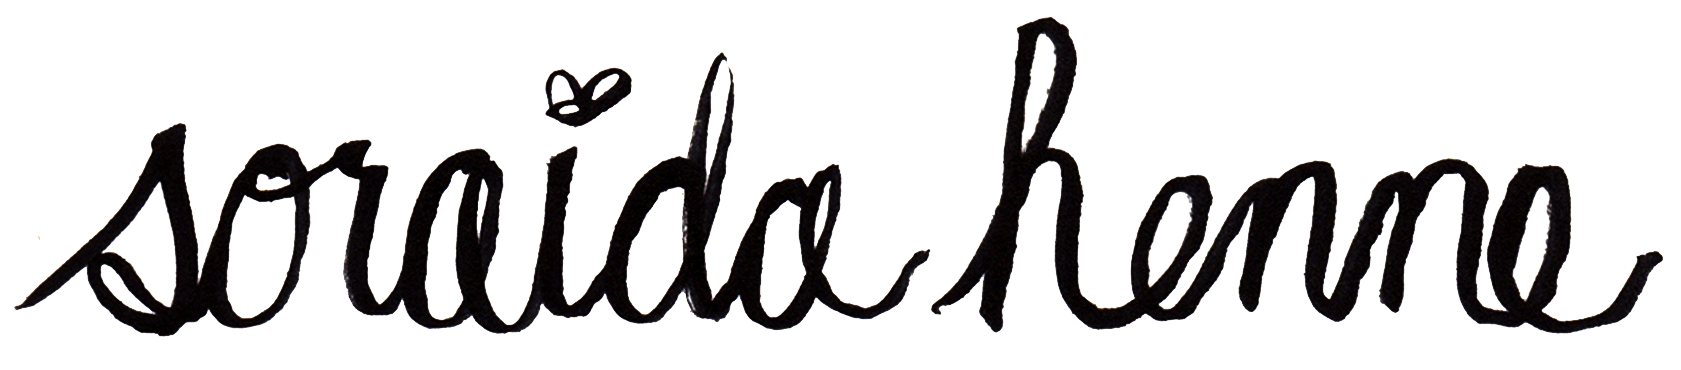 soraida henne